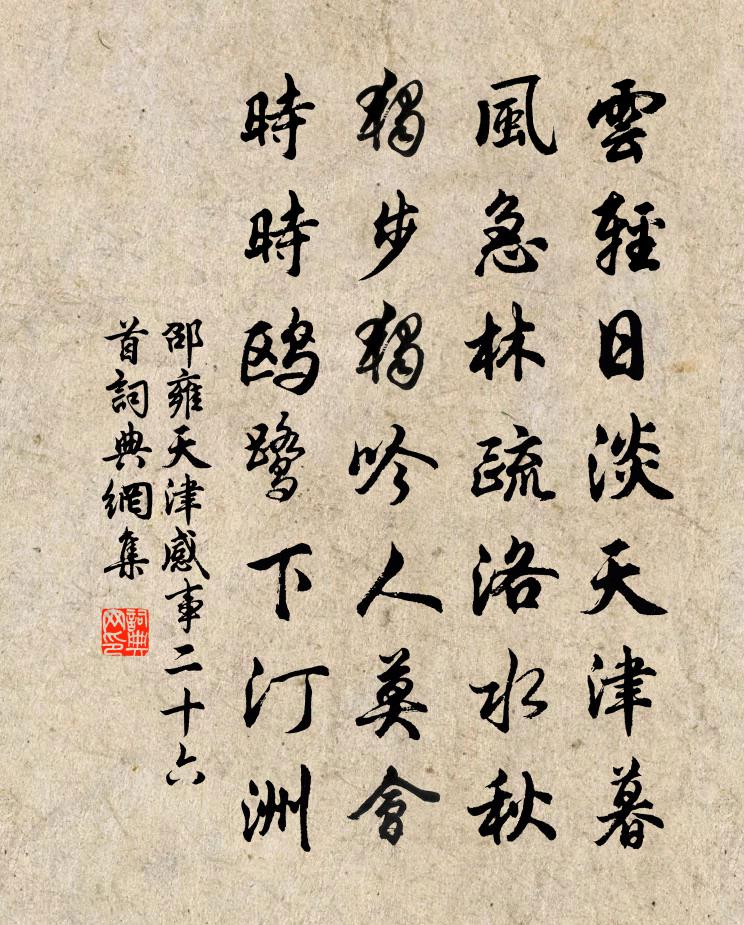 雲輕日淡天津暮
風急林疏洛水秋
獨步獨吟人莫會
時時鷗鷺下汀洲
邵雍天津感事二十六
首詞典網集
詞典网印